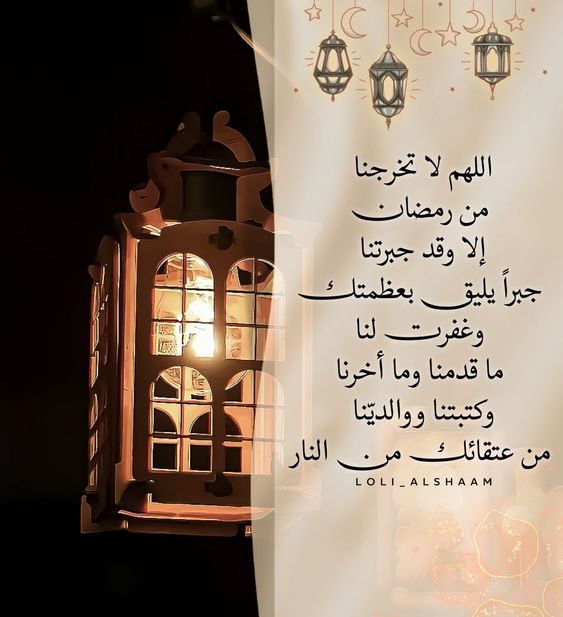 اللهم لا تخرجنا
من رمضان
إلا وقد جبرتنا
جبراً يليق بعظمتك
وغفرت لنا
ما قدمنا وما أخرنا
وكتبتنا ووالديّنا
من عتقائك من النار
LOLI_ALSHAAM